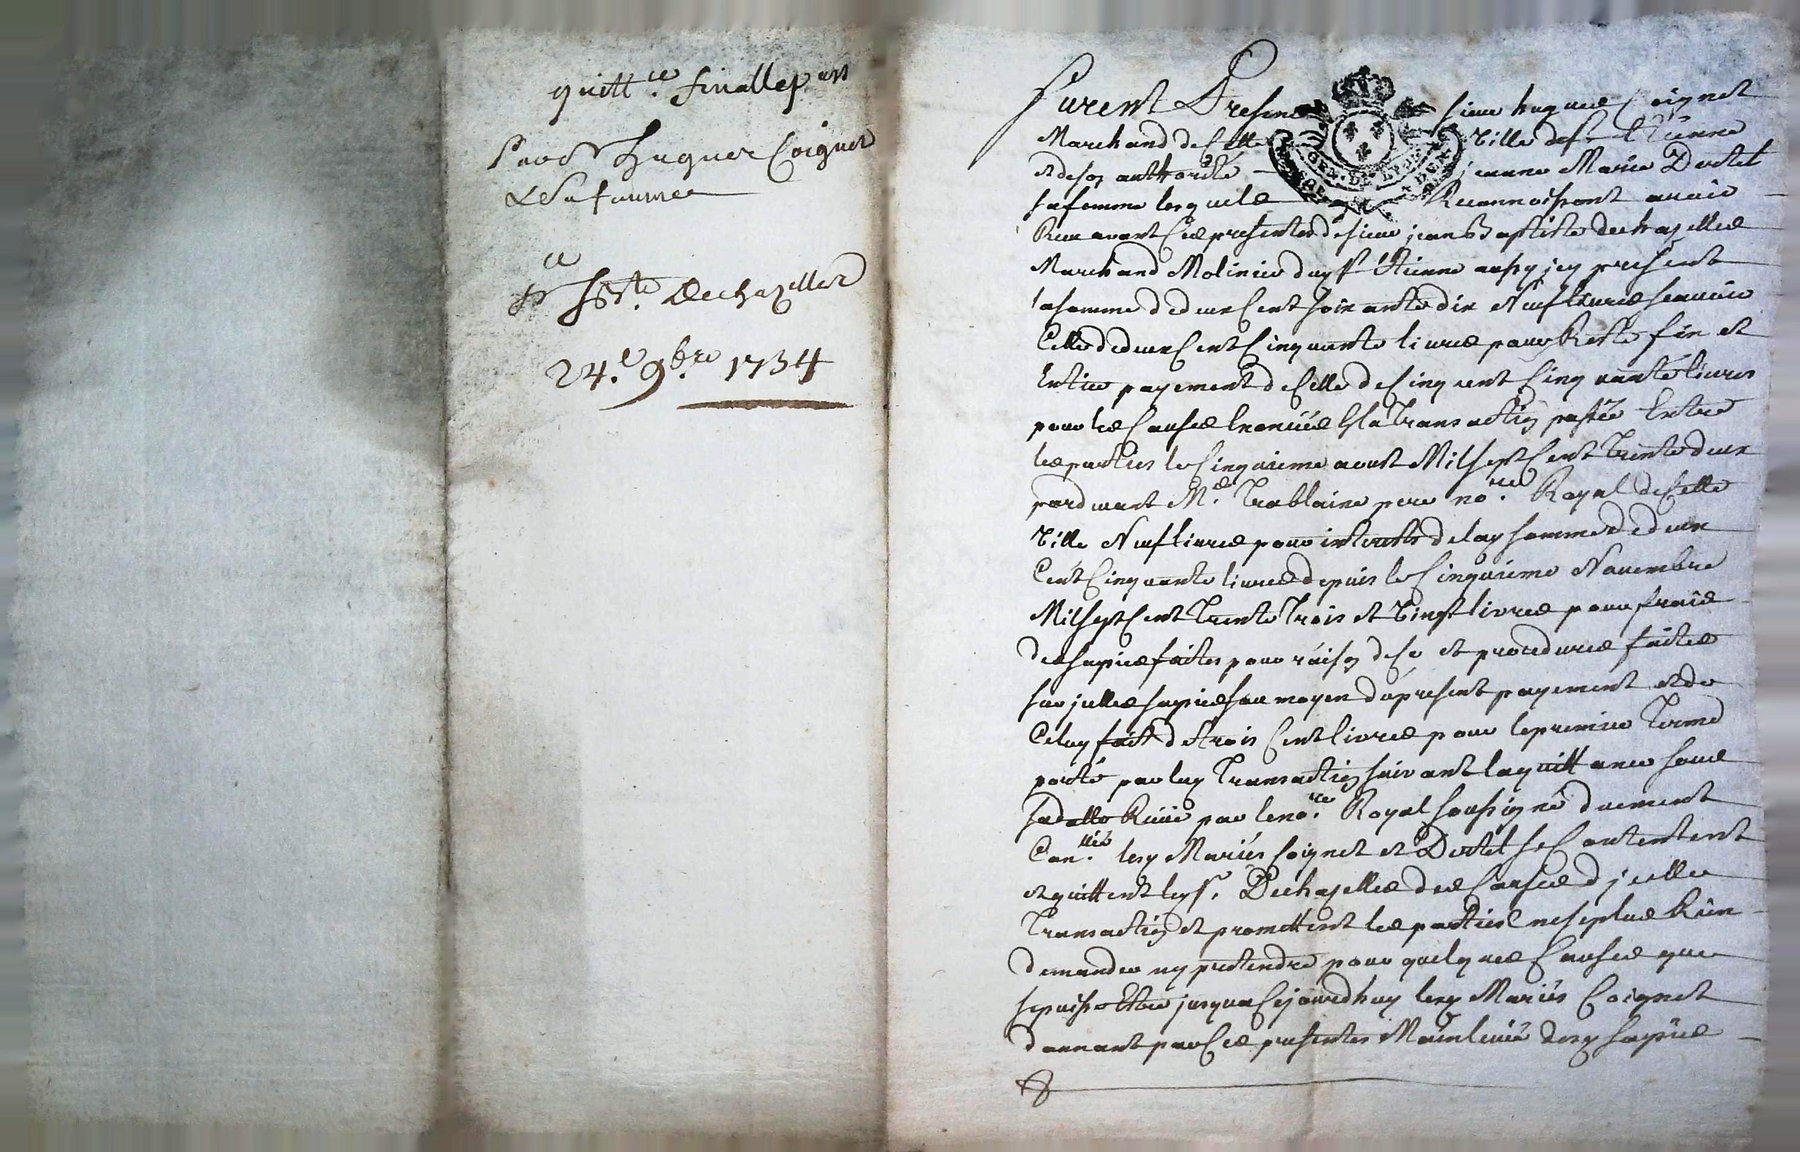 quitt.ce finalle part
Pour Sr hugues Coignet
& Sa famme
Ce
Sr Jbte Dechazelles
24.e 9bre 1734
furent Presents sieur hugues Coignet
Marchand de Cette Ville de st Etienne
et de son authorité jeanne Marie Dextet
sa femme lesquels Reconnoissent avoir
Receu avant Ces presentes de sieur jean Baptiste dechazelles
Marchand Molinier dudt st Etienne aussy icy present
la somme de deux Cent soixante dix Neuf livres scavoir
Celle de deux Cent Cinquante livres pour Reste fin et
Entier payement de Celle de Cinq cent Cinquante livres
pour les Causes Enoncées En la transaction passée Entre
les parties le Cinquieme aoust Mil sept Cent trente deux
pardevant Me. trablaine pere nore. Royal de Cette
Ville Neuf livres pour interests de lad somme de deux
Cent Cinquante livres depuis le Cinquieme Novembre
Mil sept Cent trente trois et Vingt livres pour frais
des saisies faites pour raison de ce et procedures faites
sur jcelles saisies au moyen du present payement et de
Celuy fait de trois Cent livres pour le premier terme
porté par lad transaction suivant la quittance sous
sa datte Receue par le nore. Royal soussigné duement
Conllée. lesd Mariés Coignet et Dextet se Contentent
et quittent led sr. Dechazelles des Causes d jcelle
transaction et promettent les parties ne se plus Rien
demander ny pretendre pour quelques Causes que
se puisse Etre jusqua Cejourdhuy lesd Mariés Coignet
donnant par Ces presentes Mainlevée desd saisies